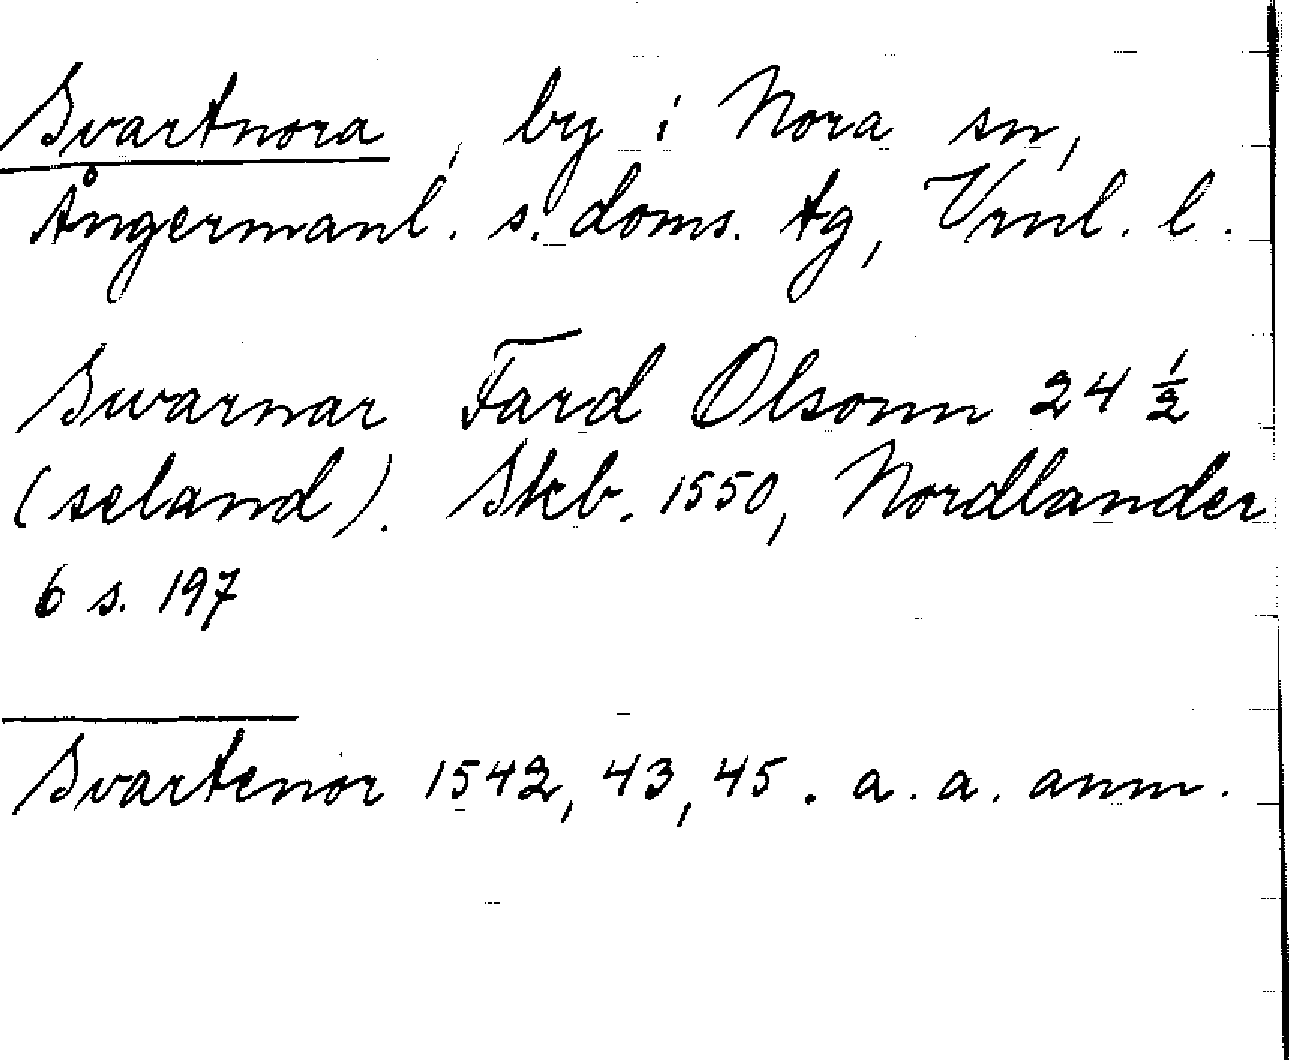 Svartnora, by i Nora sn,
Ångermanl. s. doms. tg, Vrnl. l.
Swarnar Fard Olsonn 24 ½
(seland). Skb. 1550, Nordlander
6 s. 197
Svartenor 1542, 43, 45. a. a. anm.